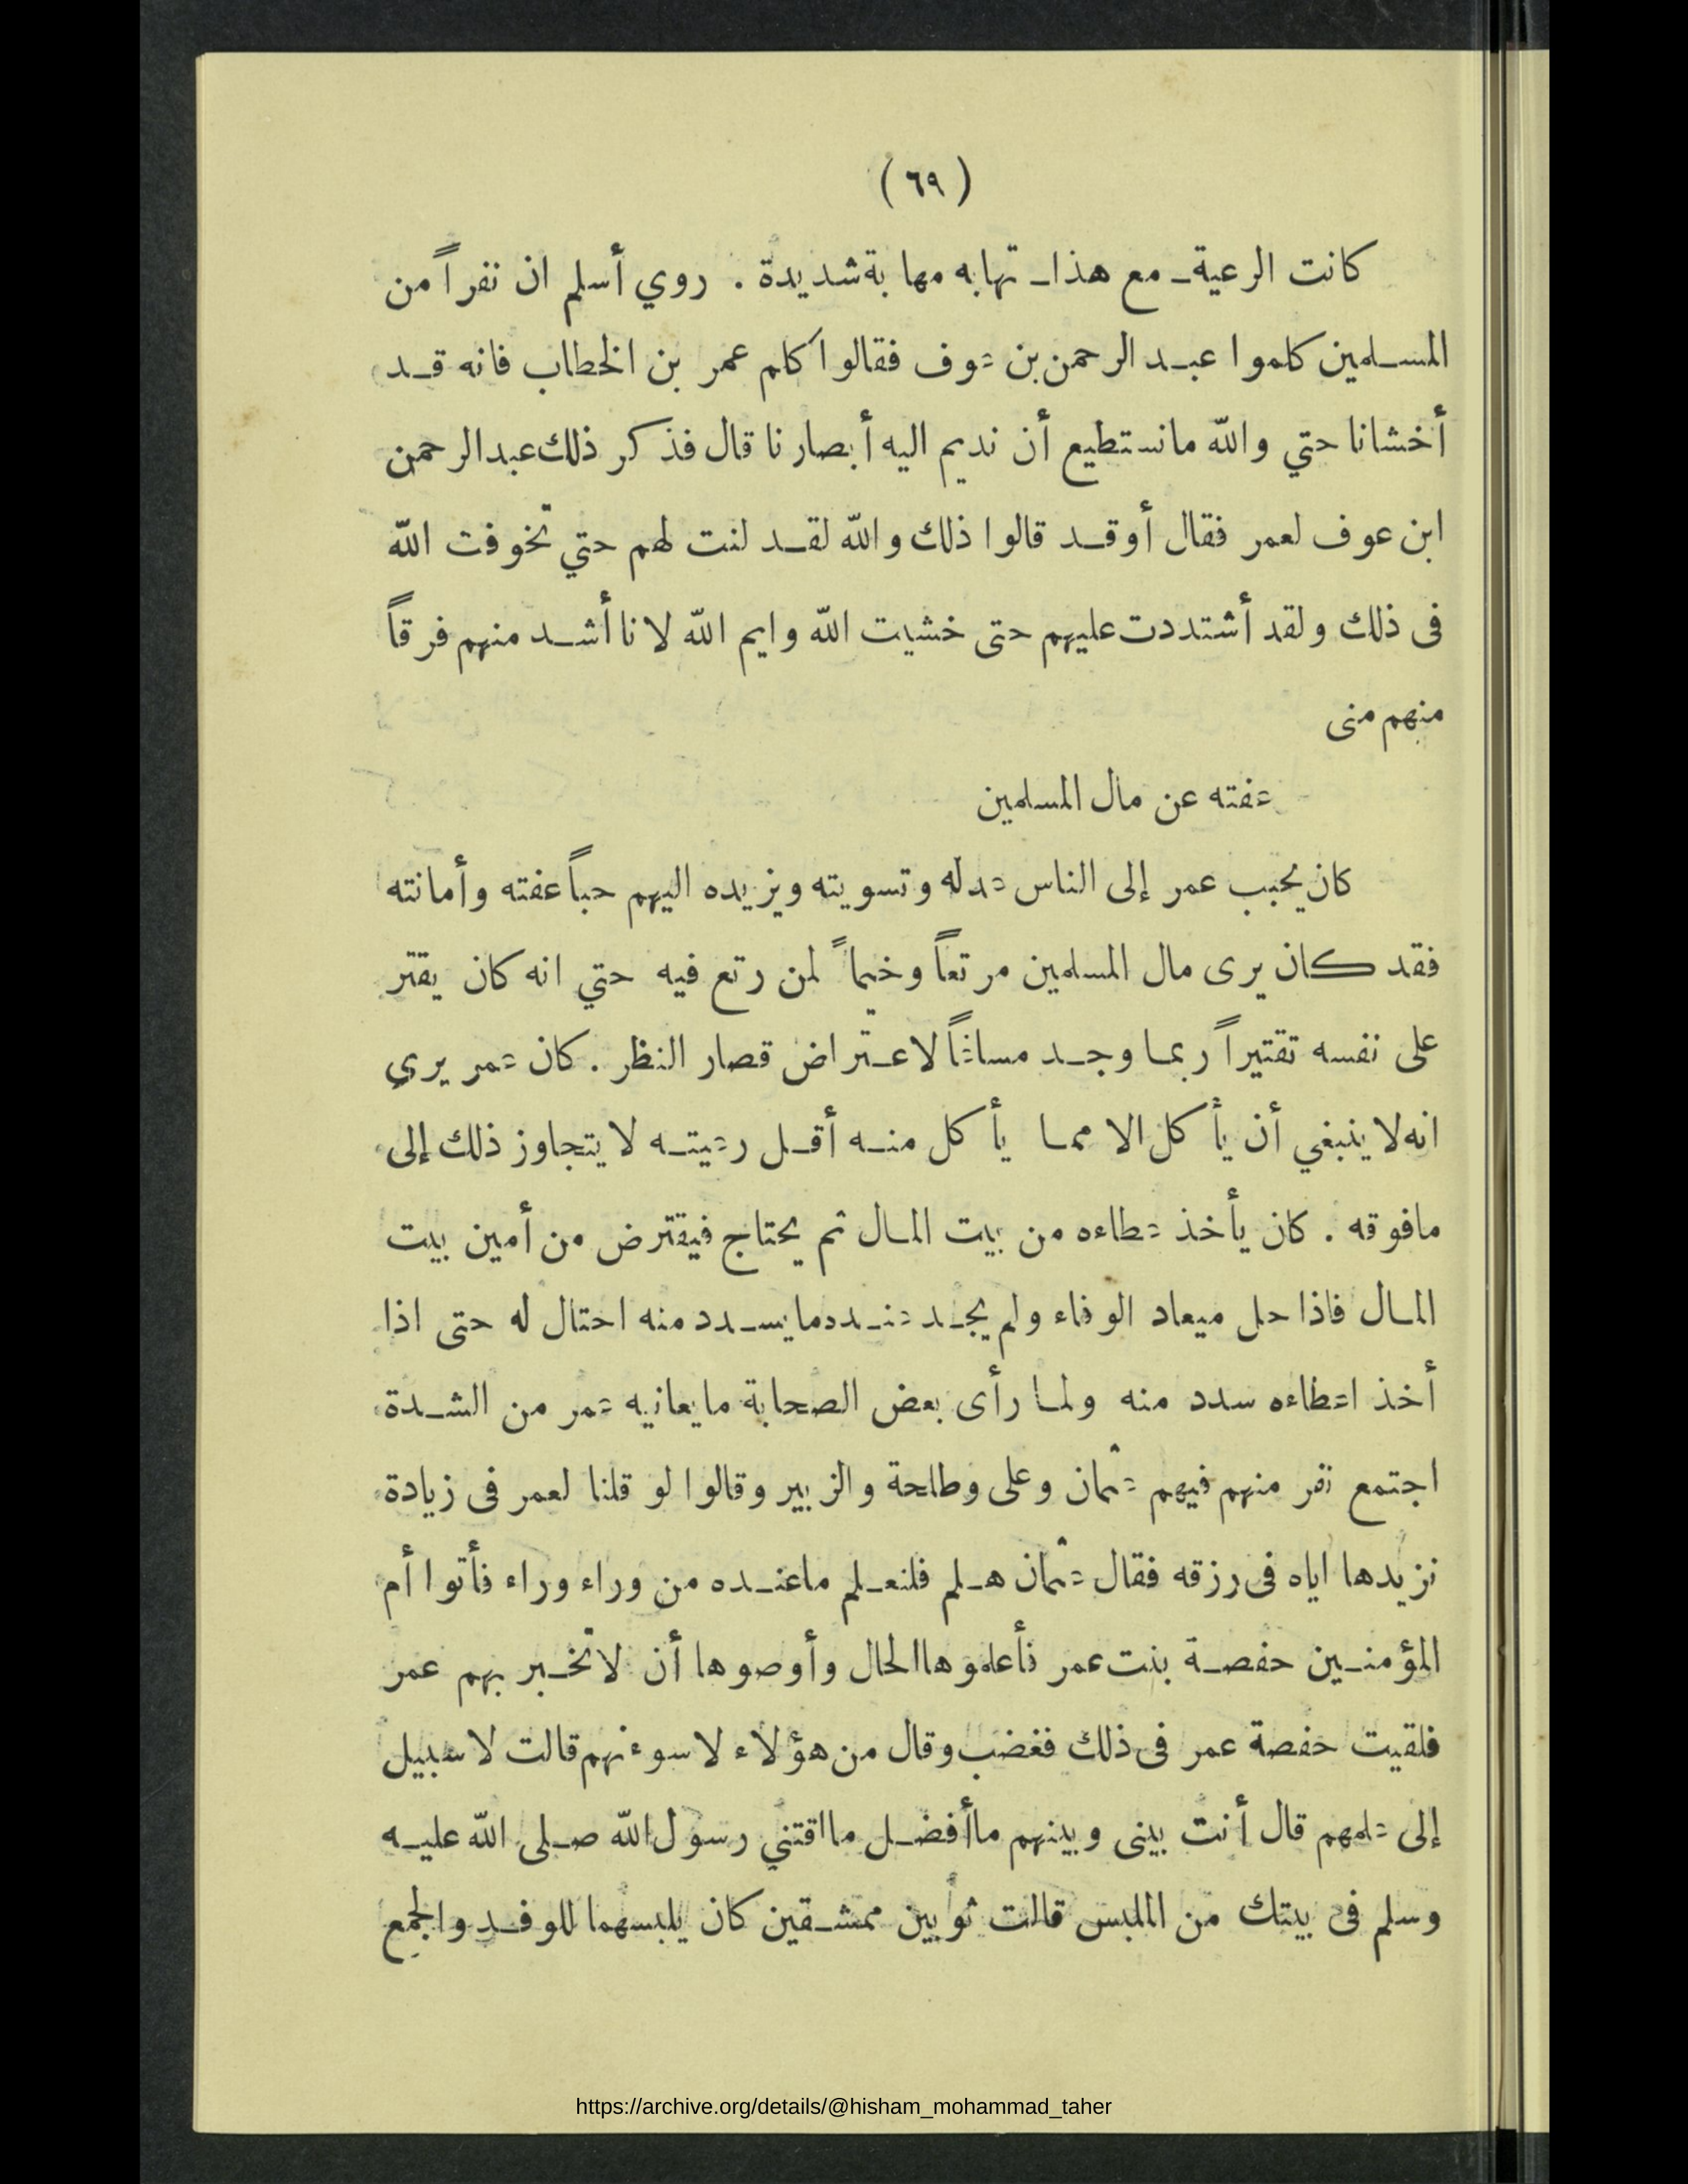 (٦٩)
كانت الرعية ـ مع هذا ـ تهابه مهابة شديدة . روي أسلم ان نفراً من
المسلمين كلموا عبد الرحمن بن عوف فقالوا كلم عمر بن الخطاب فانه قد
أخشانا حتي والله مانستطيع أن نديم اليه أبصارنا قال فذكر ذلك عبد الرحمن
ابن عوف لعمر فقال أوقد قالوا ذلك والله لقد لنت لهم حتي تخوفت الله
فى ذلك ولقد أشتددت عليهم حتى خشيت الله وايم الله لانا أشد منهم فرقاً
منهم منى
عفته عن مال المسلمين
كان يحبب عمر إلى الناس عدله وتسويته ويزيده اليهم حباً عفته وأمانته
فقد كان يرى مال المسلمين مرتعاً وخيماً لمن رتع فيه حتي انه كان يقتر
على نفسه تقتيراً ربما وجد مساغاً لاعتراض قصار النظر . كان عمر يري
انه لا ينبغي أن يأكل الا مما يأكل منه أقل رعيته لا يتجاوز ذلك إلى
مافوقه . كان يأخذ عطاءه من بيت المال ثم يحتاج فيقترض من أمين بيت
المال فاذا حل ميعاد الوفاء ولم يجد عنده مايسدد منه احتال له حتى اذا
أخذ اعطاءه سدد منه ولما رأى بعض الصحابة مايعانيه عمر من الشدة
اجتمع نفر منهم فيهم عثمان وعلى وطلحة والزبير وقالوا لو قلنا لعمر فى زيادة
نزيدها اياه فى رزقه فقال عثمان هلم فلنعلم ماعنده من وراء وراء فأتوا أم
المؤمنين حفصة بنت عمر فأعلموها الحال وأوصوها أن لا تخبر بهم عمر
فلقيت حفصة عمر فى ذلك فغضب وقال من هؤلاء لاسوءنهم قالت لا سبيل
إلى علمهم قال أنت بينى وبينهم ماأفضل مااقتني رسول الله صلى الله عليه
وسلم فى بيتك من الملبس قالت ثوبين ممشقين كان يلبسهما للوفد والجمع
https://archive.org/details/@hisham_mohammad_taher